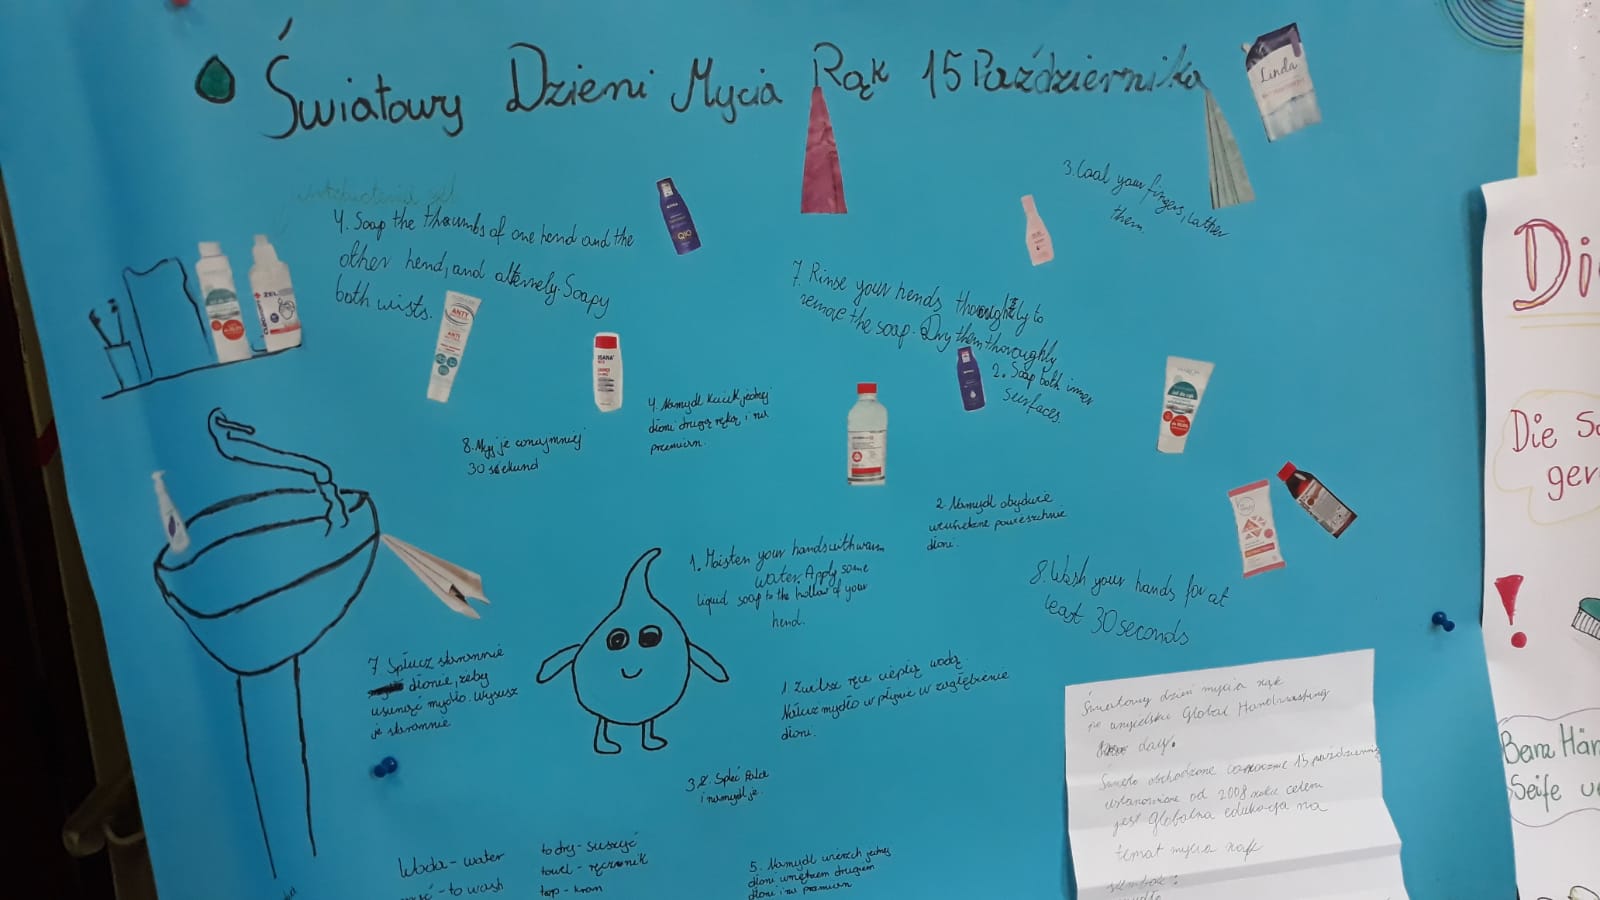 Światowy Dzieni Mycia Rąk 15 Października
Linda
3. Coal your fingers, lather
them.
4. Soap the thoumbs of one hend and the
other hend, and alternely. Soapy
both wists.
NIVEA
Q10
7. Rinse your hends thoroughtly to
remove the soap. Dry them thoroughly
2. Soap both inner
surfaces.
ŻEL
ANTY
ISANA
4. Namydl kciuk jednej
dłoni drugą ręką i na
przemian.
8. Myj je conajmniej
30 sekund
2. Namydl obydwie
wewnętrzne powierzchnie
dłoni.
1. Moisten your hands with warm
water. Apply some
liquid soap to the hollow of your
hend.
8. Wash your hands for at
least 30 seconds
7 Spłucz starannie
dłonie, żeby
usunąć mydło. Wysusz
je starannie
1. Zwilsz ręce ciepłą wodą.
Nałuż mydło w płynie w zagłębienie
dłoni.
3. Spleć palce
i namydl je.
Światowy dzień mycia rąk
po angielsku Global Handwashing
day.
Święto obchodzone corocznie 15 października
ustanowione od 2008 roku celem
jest globalna edukacja na
temat mycia rąk
Woda - water
- to wash
to dry - suszyć
towel - ręcznik
tap - kran
5. Namydl wierzch jednej
dłoni wnętrzem drugiej
dłoni i na przemian
Di
Die S
ger
!
Beim Hän
Seife u